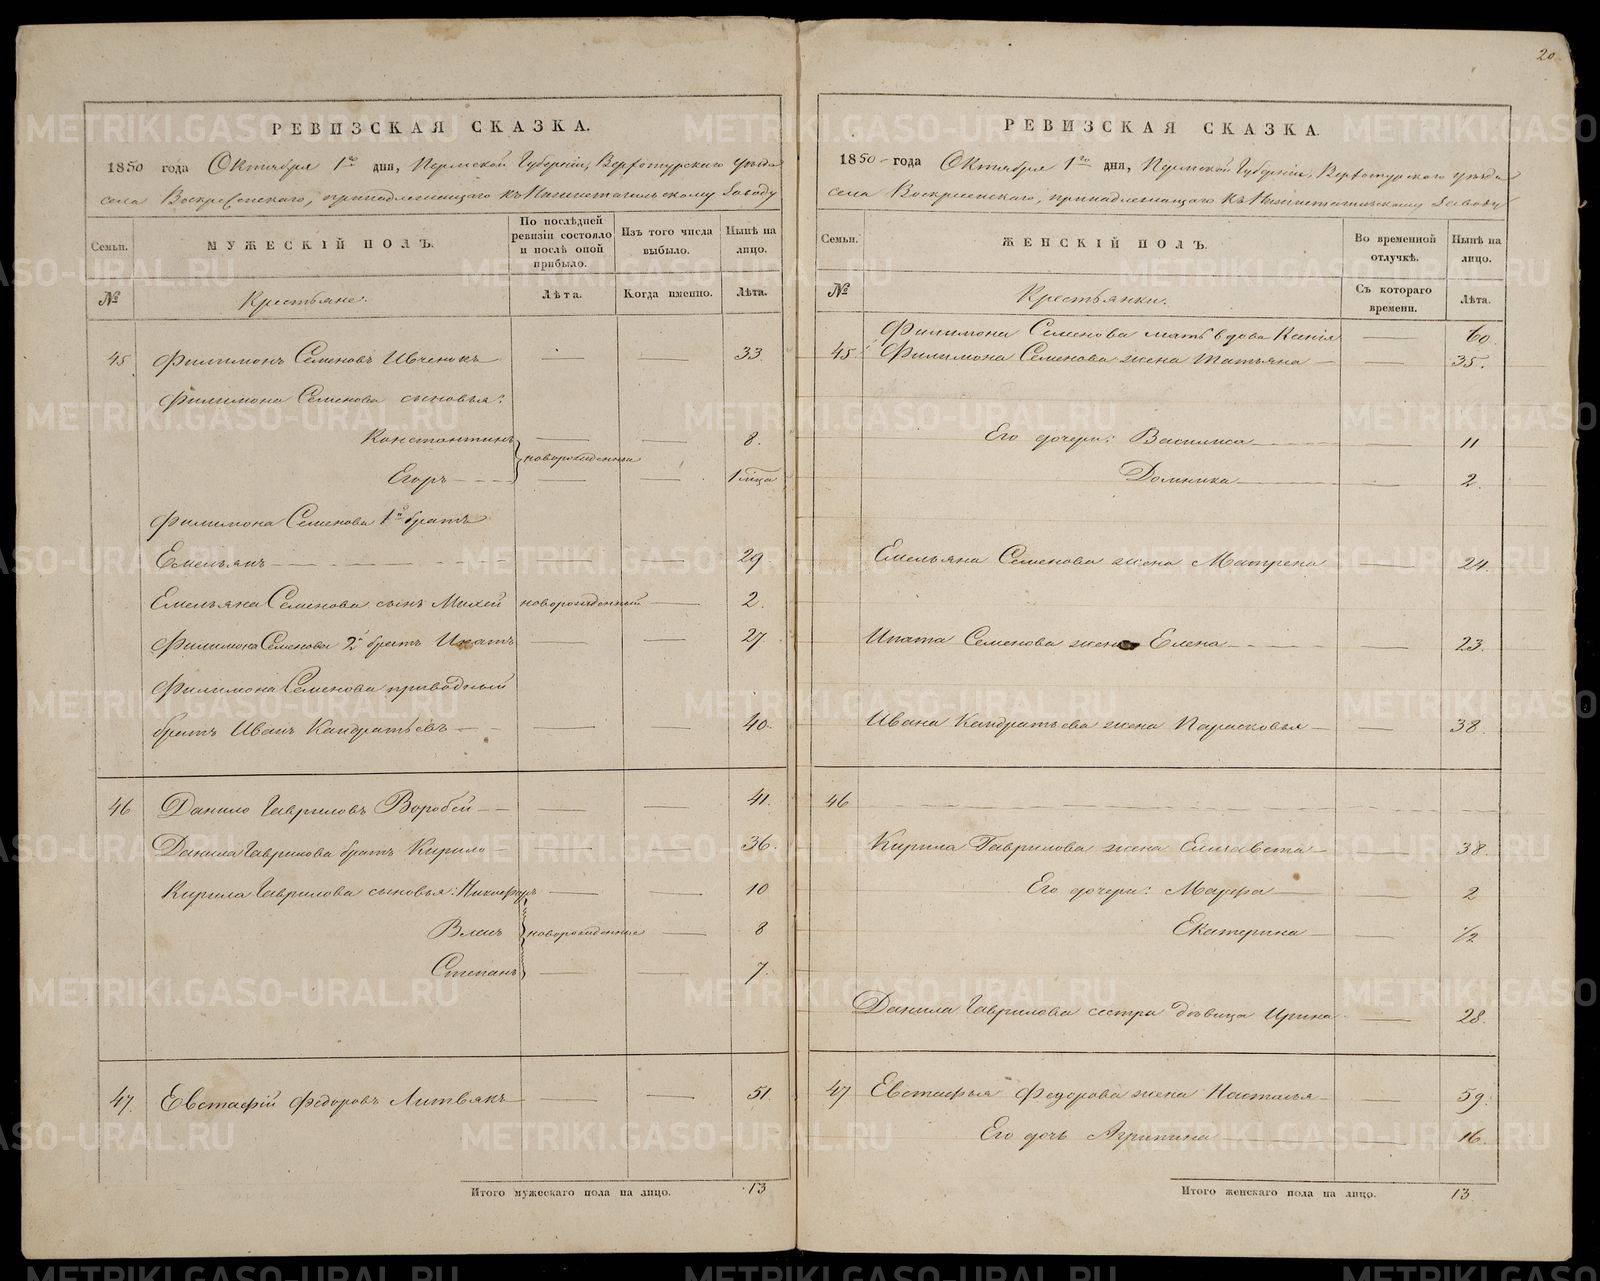 20
РЕВИЗСКАЯ СКАЗКА.
1850 года Октября 1го дня, Пермской Губернии, Верхотурскаго уѣзда
села Воскресенскаго, принадлежащаго къ Нижнетагильскому Заводу
Семьи. МУЖЕСКІЙ ПОЛЪ. По послѣдней ревизіи состояло и послѣ оной прибыло. Изъ того числа выбыло. Нынѣ на лицо.
№ Крестьяне. Лѣта. Когда именно. Лѣта.
45 Филимонъ Семеновъ Ивченокъ 33.
Филимона Семенова сыновья:
Константинъ 8.
новорожденные
Егоръ 1 мѣсца
Филимона Семенова 1й братъ
Емельянъ 29
Емельяна Семенова сынъ Михей новорожденный 2.
Филимона Семенова 2й братъ Ипатъ 27
Филимона Семенова приводный
братъ Иванъ Кандратьевъ 40.
46 Данило Гавриловъ Воробей 41.
Данила Гаврилова братъ Кирило 36.
Кирила Гаврилова сыновья: Никифоръ 10
Власъ новорожденные 8
Степанъ 7.
47. Евстафій Федоровъ Литвякъ 51.
Итого мужескаго пола на лицо. 13
РЕВИЗСКАЯ СКАЗКА.
1850 года Октября 1го дня, Пермской Губерніи, Верхотурскаго уѣзда
села Воскресенскаго, принадлежащаго къ Нижнетагильскому Заводу
Семьи. ЖЕНСКІЙ ПОЛЪ. Во временной отлучкѣ. Нынѣ на лицо.
№ Крестьянки. Съ котораго времени. Лѣта.
Филимона Семенова мать вдова Ксенія 60.
45 Филимона Семенова жена Татьяна 35.
Его дочери: Василиса 11
Домника 2.
Емельяна Семенова жена Матрена 24.
Ипата Семенова жена Елена 23.
Ивана Кандратьева жена Парасковья 38.
46
Кирила Гаврилова жена Елисавета 38.
Его дочери: Марфа 2
Екатерина 1/2
Данила Гаврилова сестра дѣвица Ирина 28.
47 Евстафья Федорова жена Настасья 59.
Его дочь Агрипина 16.
Итого женскаго пола на лицо. 13
METRIKI.GASO-URAL.RU